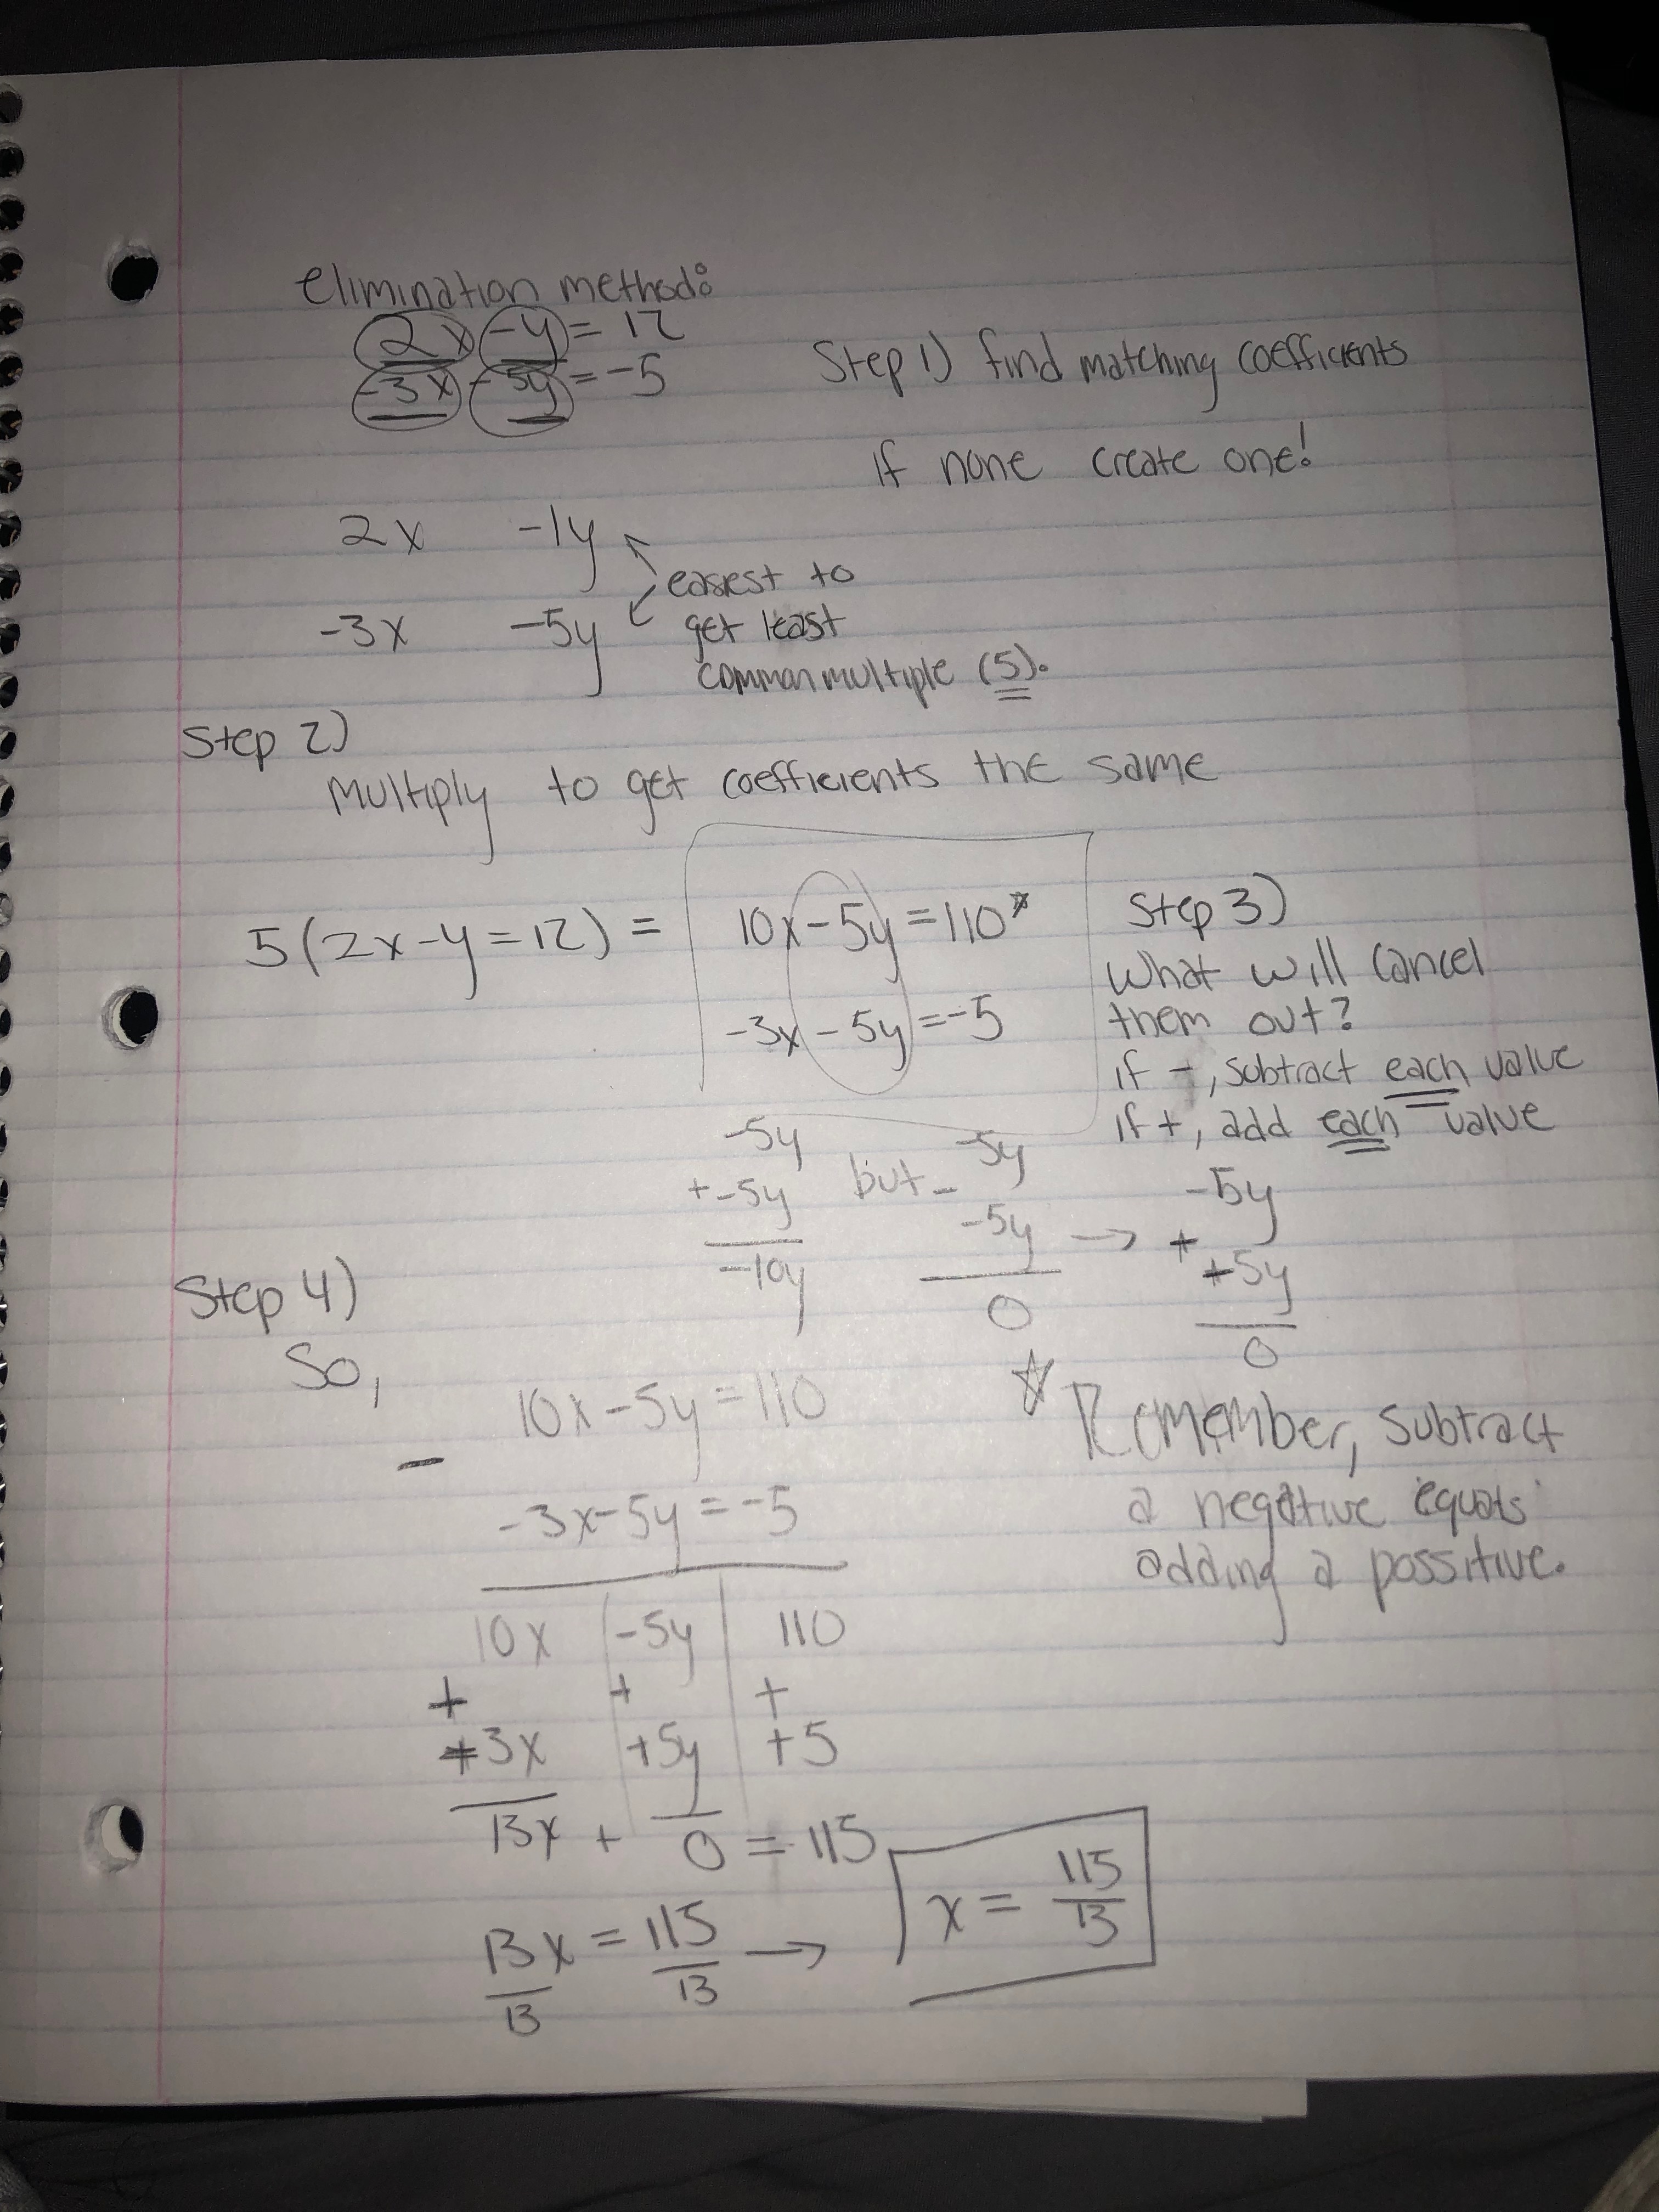 elimination method:
2x - y = 12
-3x - 5y = -5
Step 1) find matching coefficients
if none create one!
2x -1y
easiest to
-3x -5y get least
common multiple (5).
Step 2)
Multiply to get coefficients the same
5(2x-y=12) = 10x-5y=110*
-3x-5y=-5
Step 3)
What will cancel
them out?
if -, subtract each value
if +, add each value
-5y
+-5y
-10y
but
-5y
- -5y
0
→
-5y
+ +5y
0
Step 4)
So,
10x-5y=110
-
-3x-5y=-5
☆ Remember, subtract
a negative equals
adding a possitive.
10x | -5y | 110
+ + +
+3x +5y +5
13x + 0 = 115
13x = 115 → x = 115
13 13 13